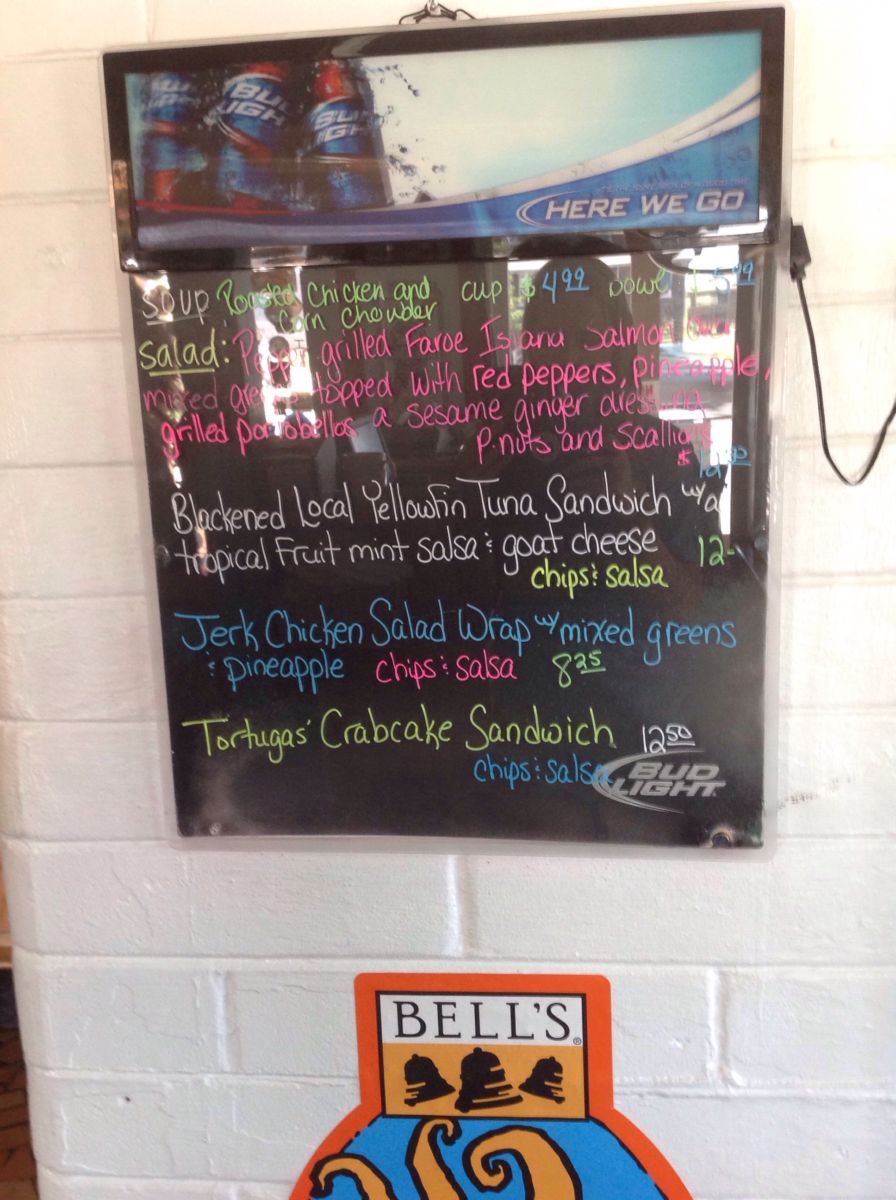 BUD LIGHT
BUD LIGHT
HERE WE GO
SOUP Roasted Chicken and cup $4.99 bowl 5.99
Corn Chowder
Salad: Pepper grilled Faroe Island Salmon over
mixed greens topped with red peppers, pineapple,
grilled portobellos a sesame ginger dressing
P.nuts and Scallions
$
Blackened Local Yellowfin Tuna Sandwich w/ a
tropical Fruit mint salsa & goat cheese 12-
chips & salsa
Jerk Chicken Salad Wrap w/ mixed greens
& pineapple chips & salsa 8.25
Tortugas' Crabcake Sandwich 12.50
chips & salsa
BUD LIGHT
BELL'S®